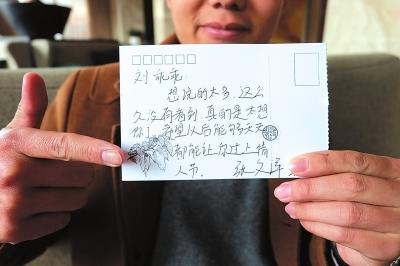 刘乖乖:
想说的太多,这么
久没有看到,真的是太想
你了,希望从后能够天天
都能让你过上情
人节.
张文泽